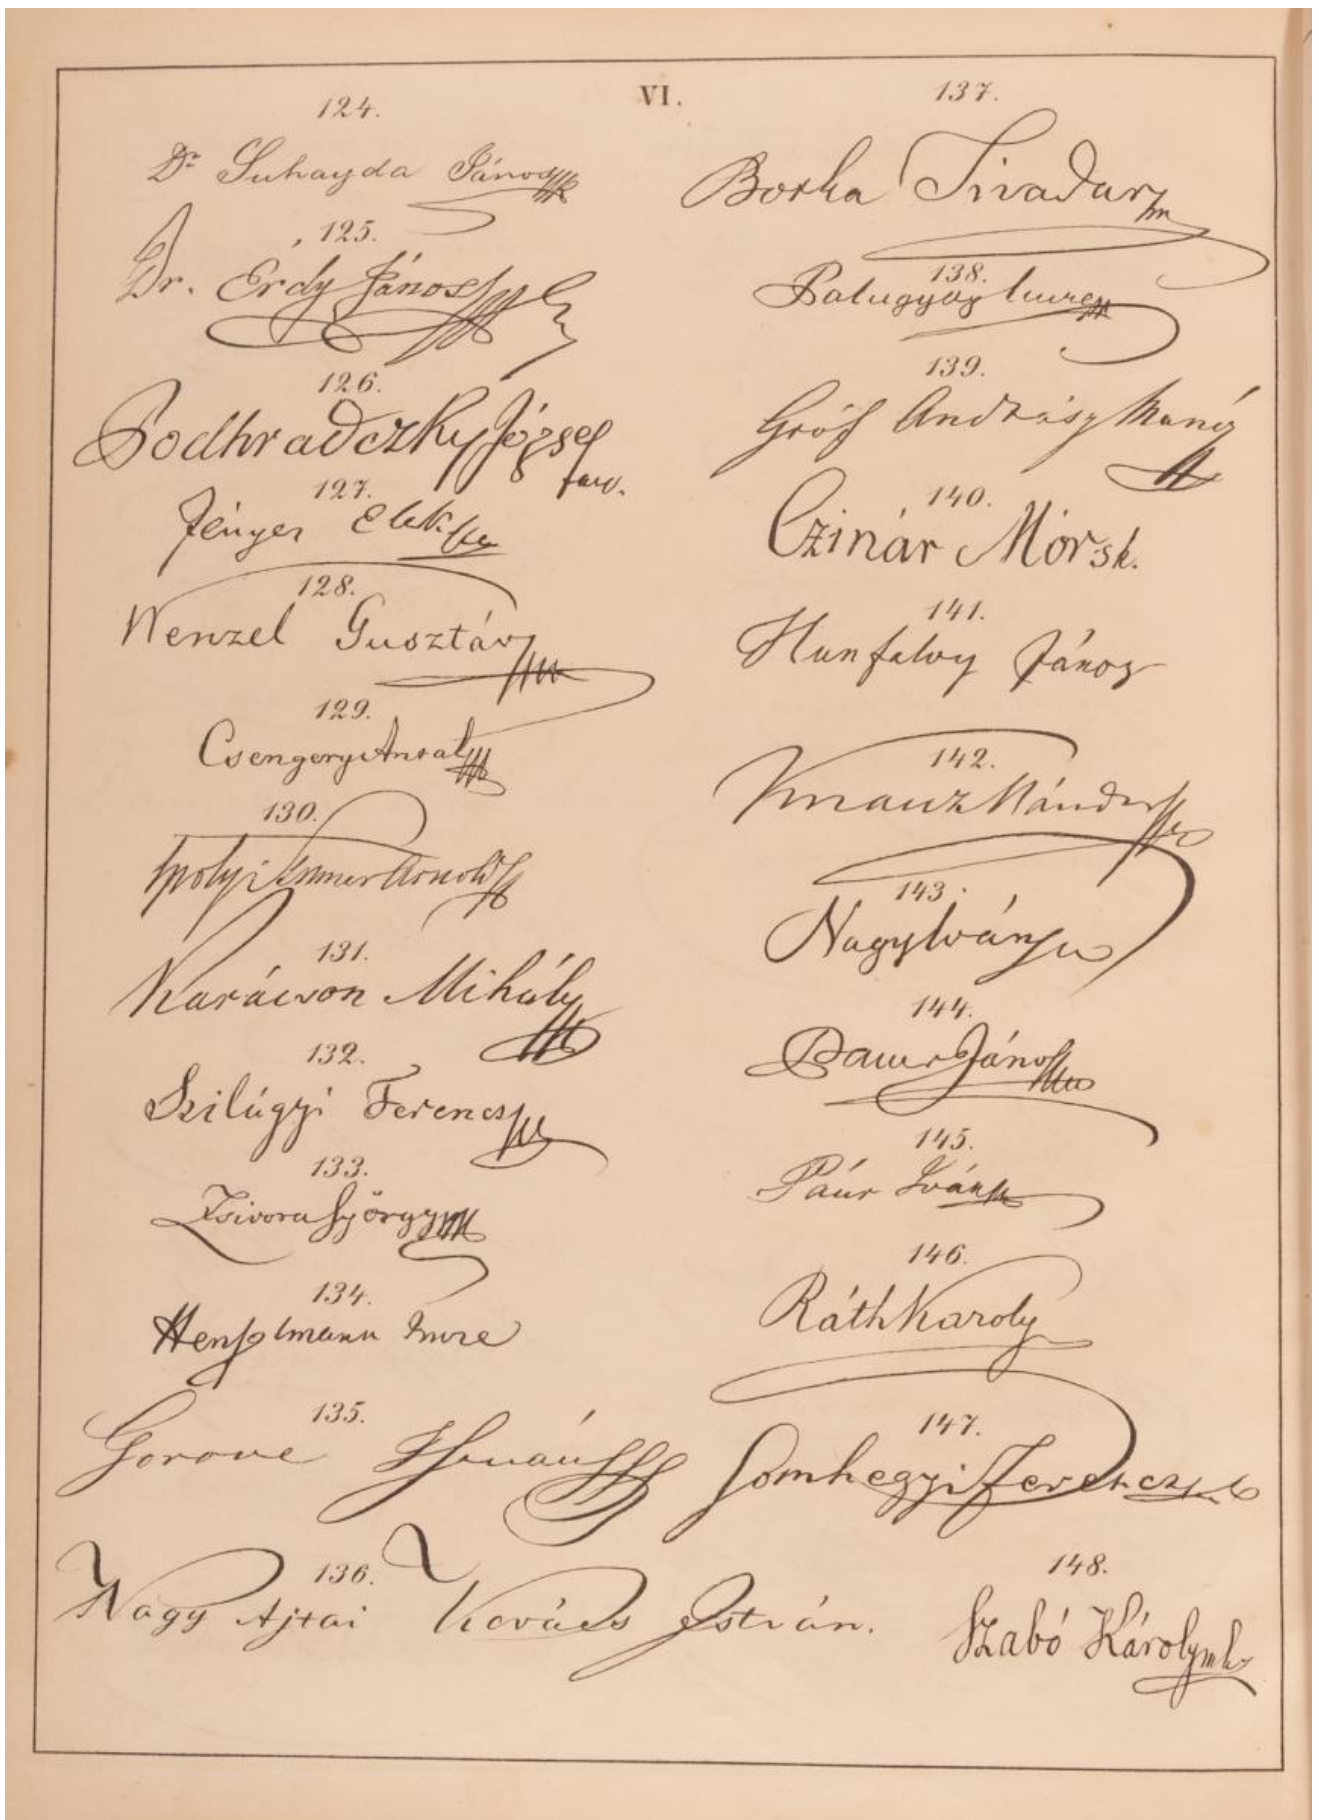 VI.
124.
Dr Suhayda János
125.
Dr. Érdy János
126.
Podhradczky József
127.
Fényes Elek
128.
Wenzel Gusztáv
129.
Csengery Antal
130.
Ipolyi Arnold
131.
Karácson Mihály
132.
Szilágyi Ferencz
133.
Zsivora György
134.
Henszlmann Imre
135.
Gorove István
136.
Nagy Ajtai Kovács István.
137.
Borka Tivadar
138.
Palugyay Imre
139.
Gróf Andrásy Manó
140.
Czinár Mór sk.
141.
Hunfalvy János
142.
Knauz Nándor
143.
Nagy Iván
144.
Paur János
145.
Paúr Iván
146.
Ráth Károly
147.
Somhegyi Ferencz
148.
Szabó Károly mk